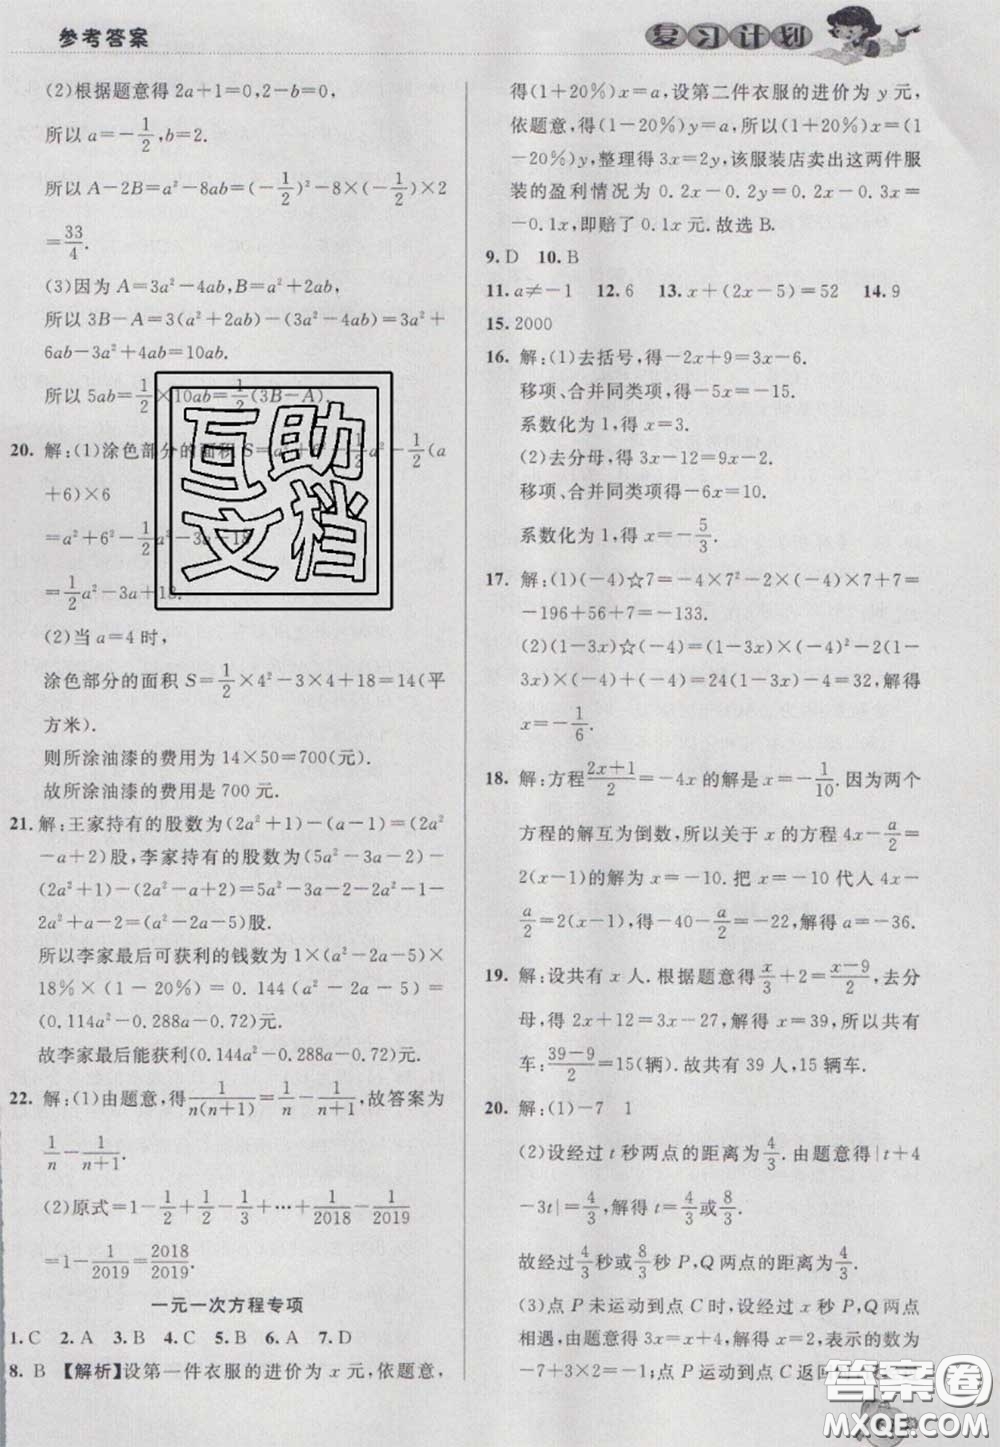 参考答案
复习计划
(2)根据题意得2a+1=0,2-b=0,
所以a=-1/2,b=2.
所以A-2B=a²-8ab=(-1/2)²-8×(-1/2)×2
=33/4.
(3)因为A=3a²-4ab,B=a²+2ab,
所以3B-A=3(a²+2ab)-(3a²-4ab)=3a²+
6ab-3a²+4ab=10ab.
所以5ab=1/2×10ab=1/2(3B-A).
20. 解:(1)涂色部分的面积S=a²+6²-1/2a²-1/2(a
+6)×6
=a²+6²-1/2a²-3a-18
=1/2a²-3a+18.
(2)当a=4时,
涂色部分的面积S=1/2×4²-3×4+18=14(平
方米).
则所涂油漆的费用为14×50=700(元).
故所涂油漆的费用是700元.
21. 解:王家持有的股数为(2a²+1)-(a-1)=(2a²
-a+2)股,李家持有的股数为(5a²-3a-2)-
(2a²+1)-(2a²-a+2)=5a²-3a-2-2a²-1-
2a²+a-2=(a²-2a-5)股.
所以李家最后可获利的钱数为1×(a²-2a-5)×
18%×(1-20%)=0.144(a²-2a-5)=
(0.144a²-0.288a-0.72)元.
故李家最后能获利(0.144a²-0.288a-0.72)元.
22. 解:(1)由题意,得1/n(n+1)=1/n-1/n+1,故答案为
1/n-1/n+1.
(2)原式=1-1/2+1/2-1/3+…+1/2018-1/2019
=1-1/2019=2018/2019.
一元一次方程专项
1.C 2.A 3.B 4.C 5.B 6.A 7.D
8. B 【解析】设第一件衣服的进价为x元,依题意,
得(1+20%)x=a,设第二件衣服的进价为y元,
依题意,得(1-20%)y=a,所以(1+20%)x=(1
-20%)y,整理得3x=2y,该服装店卖出这两件服
装的盈利情况为0.2x-0.2y=0.2x-0.3x=
-0.1x,即赔了0.1x元.故选B.
9.D 10.B
11.a≠-1 12.6 13.x+(2x-5)=52 14.9
15.2000
16. 解:(1)去括号,得-2x+9=3x-6.
移项、合并同类项,得-5x=-15.
系数化为1,得x=3.
(2)去分母,得3x-12=9x-2.
移项、合并同类项得-6x=10.
系数化为1,得x=-5/3.
17. 解:(1)(-4)☆7=-4×7²-2×(-4)×7+7=
-196+56+7=-133.
(2)(1-3x)☆(-4)=(1-3x)×(-4)²-2(1-
3x)×(-4)+(-4)=24(1-3x)-4=32,解得
x=-1/6.
18. 解:方程2x+1/2=-4x的解是x=-1/10.因为两个
方程的解互为倒数,所以关于x的方程4x-a/2=
2(x-1)的解为x=-10.把x=-10代人4x-
a/2=2(x-1),得-40-a/2=-22,解得a=-36.
19. 解:设共有x人.根据题意得x/3+2=x-9/2,去分
母,得2x+12=3x-27,解得x=39,所以共有
车:39-9/2=15(辆).故共有39人,15辆车.
20. 解:(1)-7 1
(2)设经过t秒两点的距离为4/3.由题意得|t+4
-3t|=4/3,解得t=4/3或8/3.
故经过4/3秒或8/3秒P,Q两点的距离为4/3.
(3)点P未运动到点C时,设经过x秒P,Q两点
相遇,由题意得3x=x+4,解得x=2,表示的数为
-7+3×2=-1;点P运动到点C返回
互助
文档
答案圈
MXQE.COM